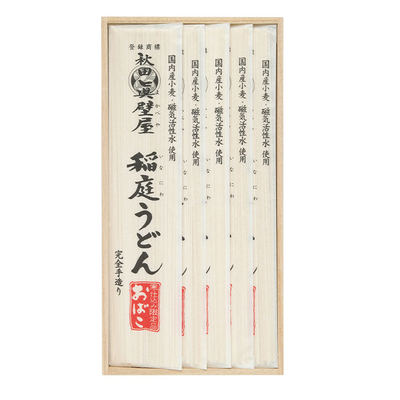 登録商標
秋田
眞壁屋
稲庭うどん
いなにわ
完全手造り
おばこ
国内産小麦・磁気活性水 使用
いなにわ
国内産小麦・磁気活性水 使用
いなにわ
国内産小麦・磁気活性水 使用
いなにわ
国内産小麦・磁気活性水 使用
いなにわ
国内産小麦・磁気活性水 使用